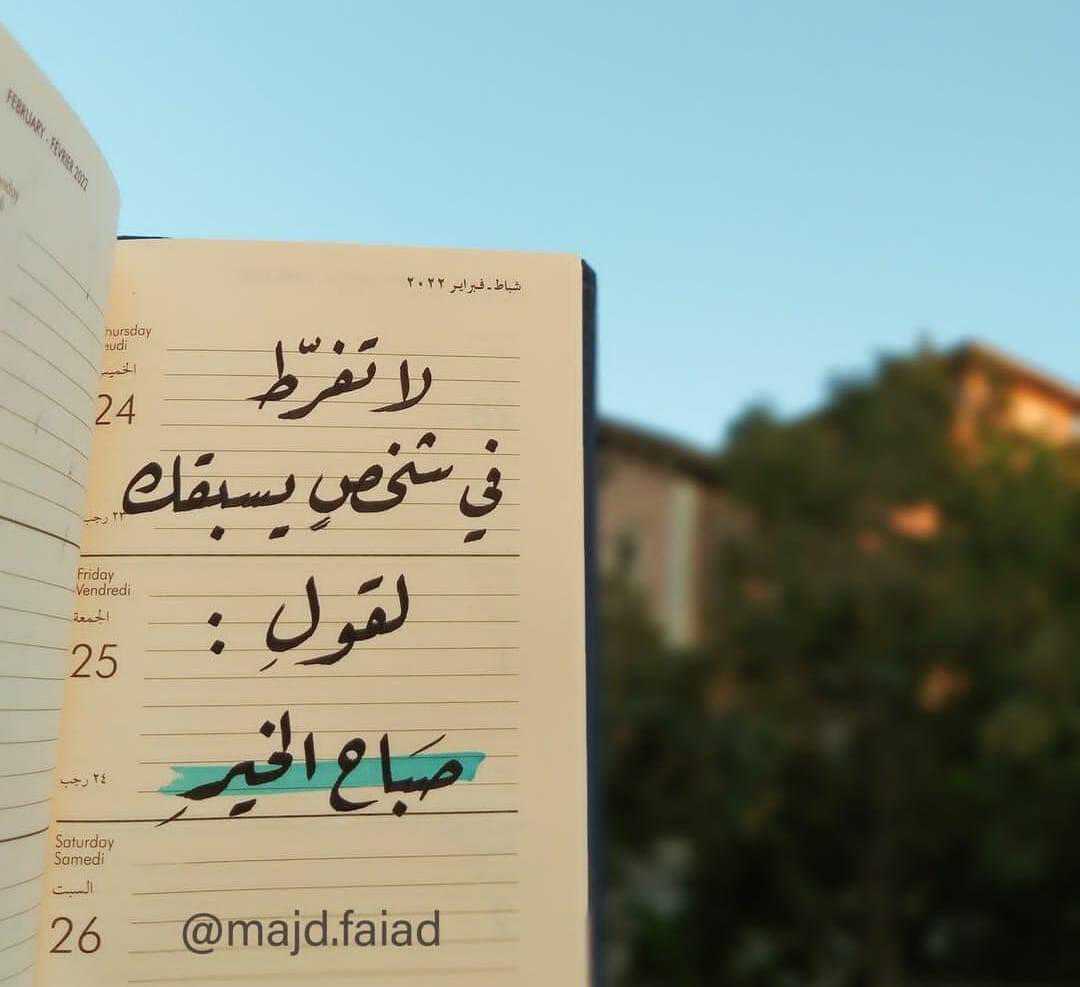 FEBRUARY - FÉVRIER 2022
شباط - فبراير ٢٠٢٢
hursday
eudi
الخميس
24
٢٣ رجب
لا تفرّط
في شخصٍ يسبقك
Friday
Vendredi
الجمعة
25
٢٤ رجب
لقولِ :
صَبَاح الخيرِ
Saturday
Samedi
السبت
26
@majd.faiad